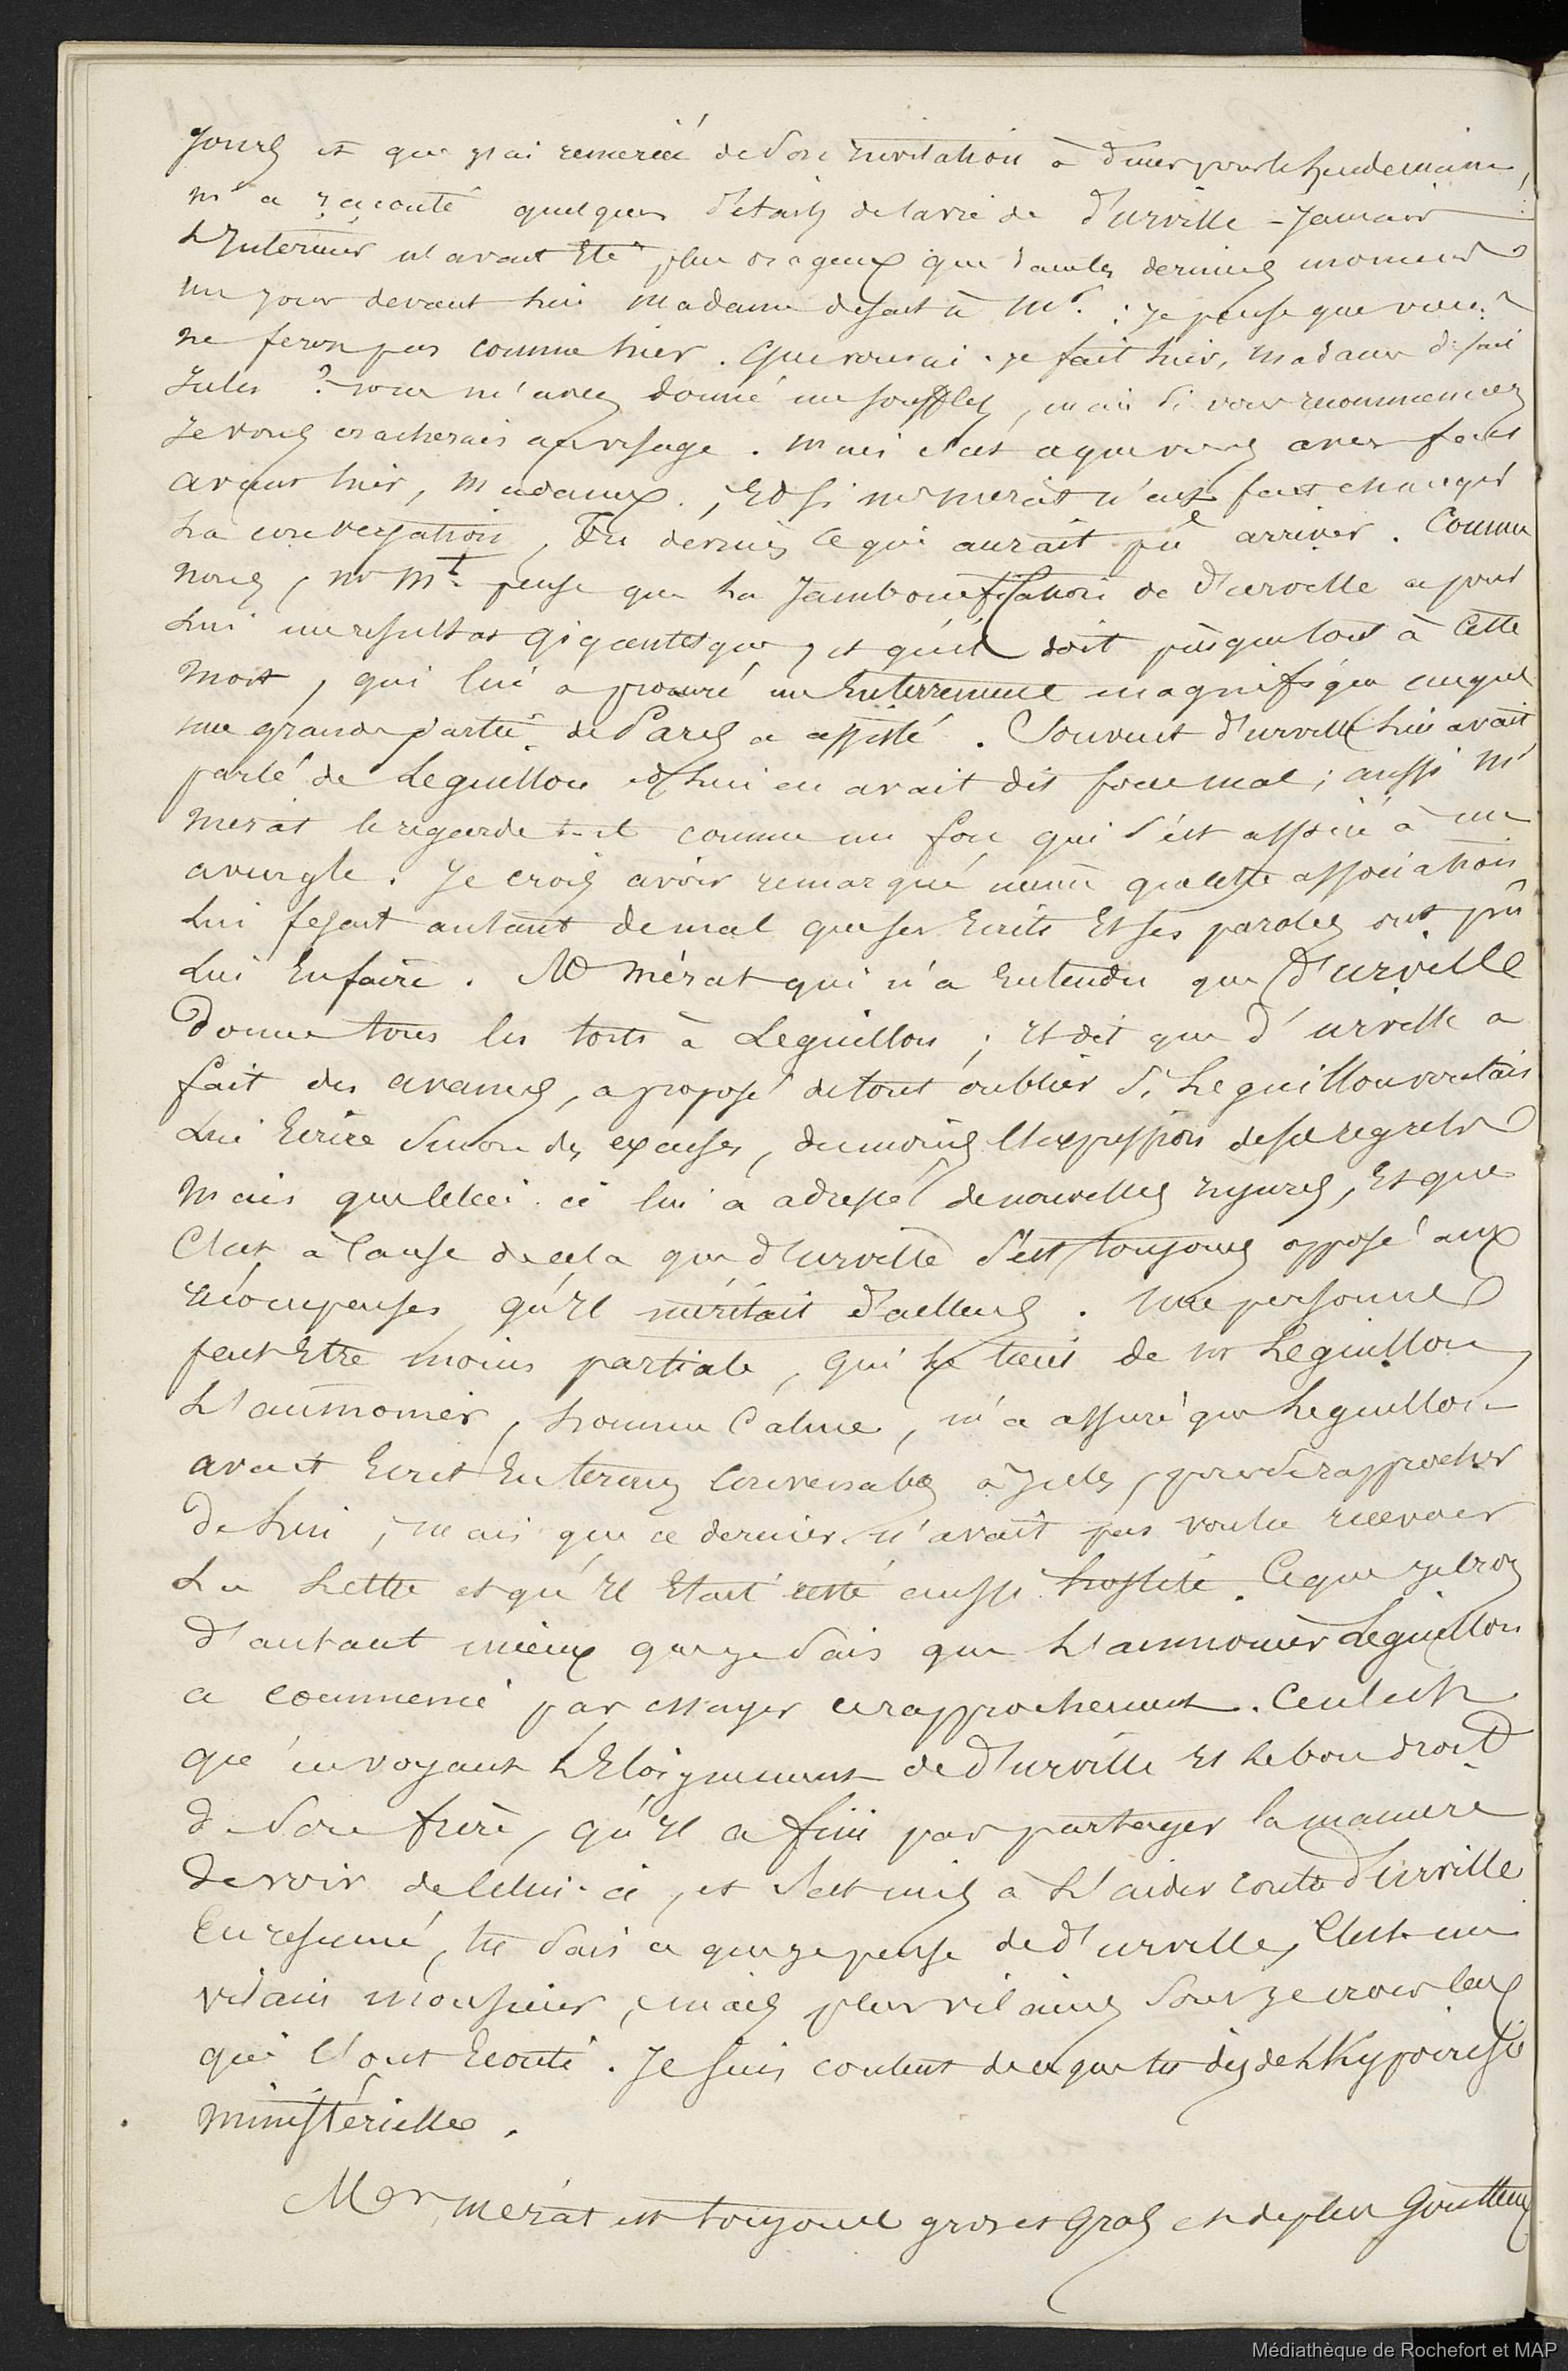 jours et que j'ai remercié de son invitation à diner pour le lendemain,
m'a raconté quelques détails de la vie de d'urville - Jamais
L'Interieur n'avait Eté plus orageux que dans les derniers moments
un jour devant lui madame disait à Mr. : je pense que vous
ne ferez pas comme hier. Que vous ai-je fait hier, madame disait
Jules ? vous m'avez donné un soufflet, mais si vous recommencez
Je vous cracherais au visage. Mais c'est que vous avez fait
avant hier, madame. ; Et si mr merat n'eut fait changer
La conversation, Tu devines ce qui aurait pu arriver. Comme
nous, mr Mt. pense que la Jambonification de d'urville a pour
Lui un resultat gigantesque, et qu'il doit presque tout à cette
mort, qui lui a procuré un Enterrement magnifique auquel
une grande partie de Paris a assisté. Souvent d'urville lui avait
parlé de Leguillou et lui en avait dit force mal ; aussi mr
merat le regarde t-il comme un fou qui s'est associé à un
aveugle. Je crois avoir remarqué même que cette association
Lui fesait autant de mal que ses Ecrits Et ses paroles ont pu
Lui En faire. Mr Mérat qui n'a Entendu que d'urville
Donne tous les torts à Leguillou ; Et dit que d'urville a
fait des avances, a proposé de tout oublier si Leguillou voulait
Lui Ecrire sinon des excuses, du moins l'expression de ses regrets
Mais que celui-ci lui a adressé de nouvelles injures, Et que
C'est à cause de cela que d'Urville s'est toujours opposé aux
récompenses qu'Il méritait d'ailleurs. Une personne
peut Etre moins partiale, qui le tient de mr Leguillou
L'aumonier, homme Calme, m'a assuré que Leguillou
avait Ecrit En termes Convenables à Jules, pour se rapprocher
De Lui, mais que ce dernier n'avait pas voulu recevoir
La Lettre et qu'Il Etait resté aussi hostile. Ce que je crois
D'autant mieux que je sais que L'aumonier Leguillou
a commencé par essayer ce rapprochement. Ce n'est
qu'en voyant L'Eloignement de d'urville Et le bon droit
de Son frère, qu'Il a fini par partager la maniere
de voir de Celui-ci, et s'est mis à L'aider contre d'Urville
En resumé, tu sais ce que je pense de d'urville, C'est un
vilain monsieur, mais plus vilains sont je crois Ceux
qui l'ont Ecouté. Je suis content de ce que tu dis de L'Hypocrisie
ministérielle.
Mer merat est toujours gros et gras et de plus Goutteux
Médiathèque de Rochefort et MAP